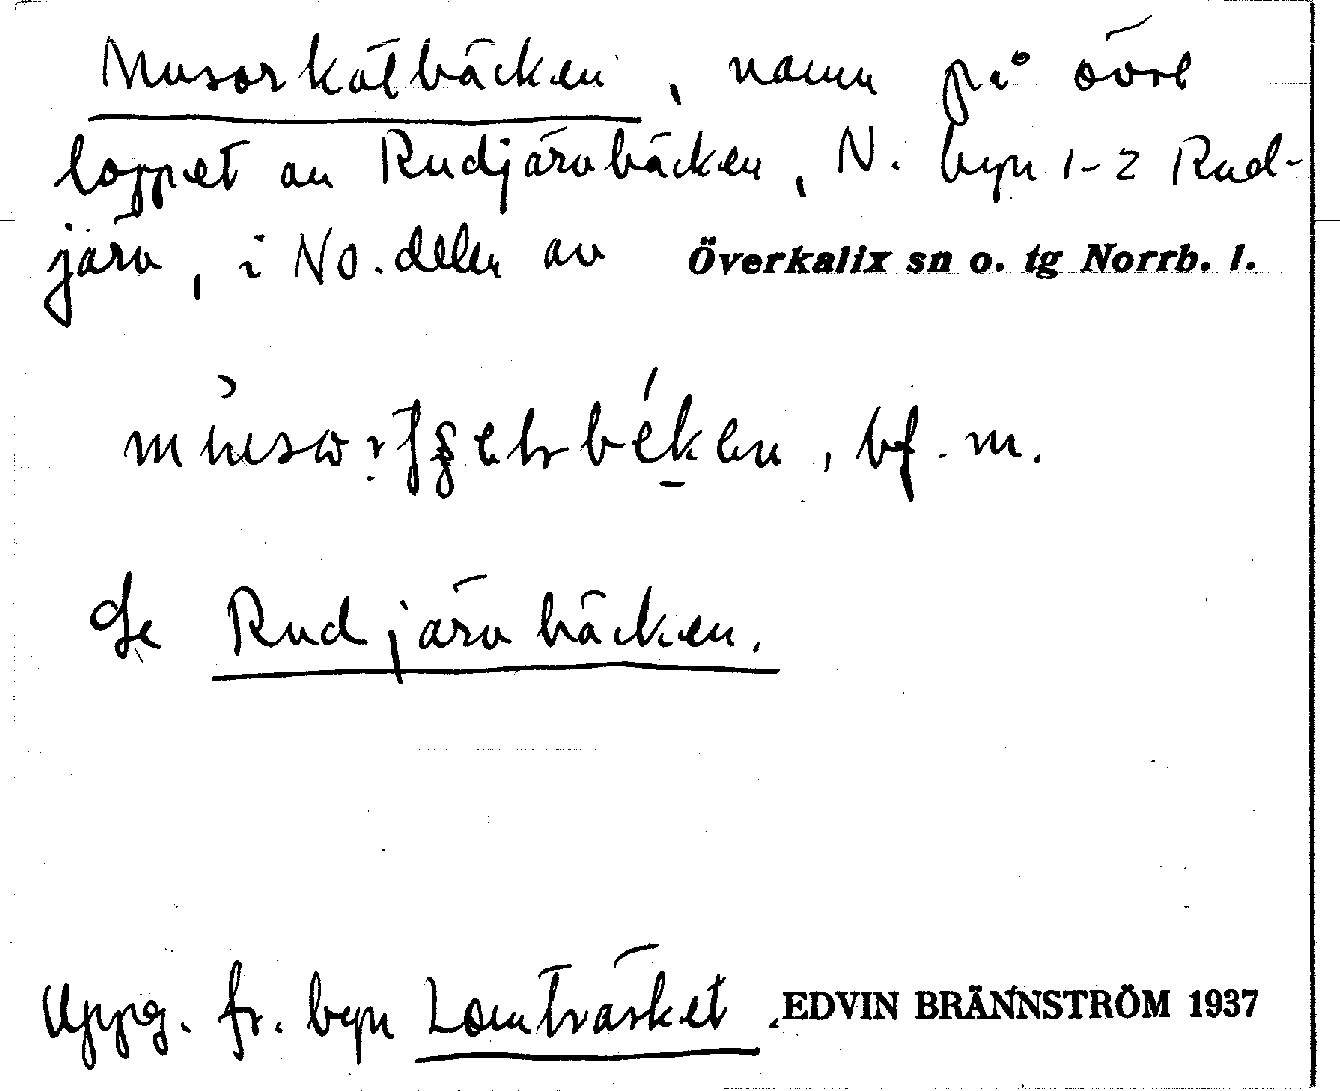 Musorkätbäcken, namn på övre
loppet av Rudjärvbäcken, N. byn 1-2 Rud-
järv, i NO.delen av Överkalix sn o. tg Norrb. l.
bf. m.
Se Rudjärvbäcken.
Uppg. fr. byn Lomträsket EDVIN BRÄNNSTRÖM 1937